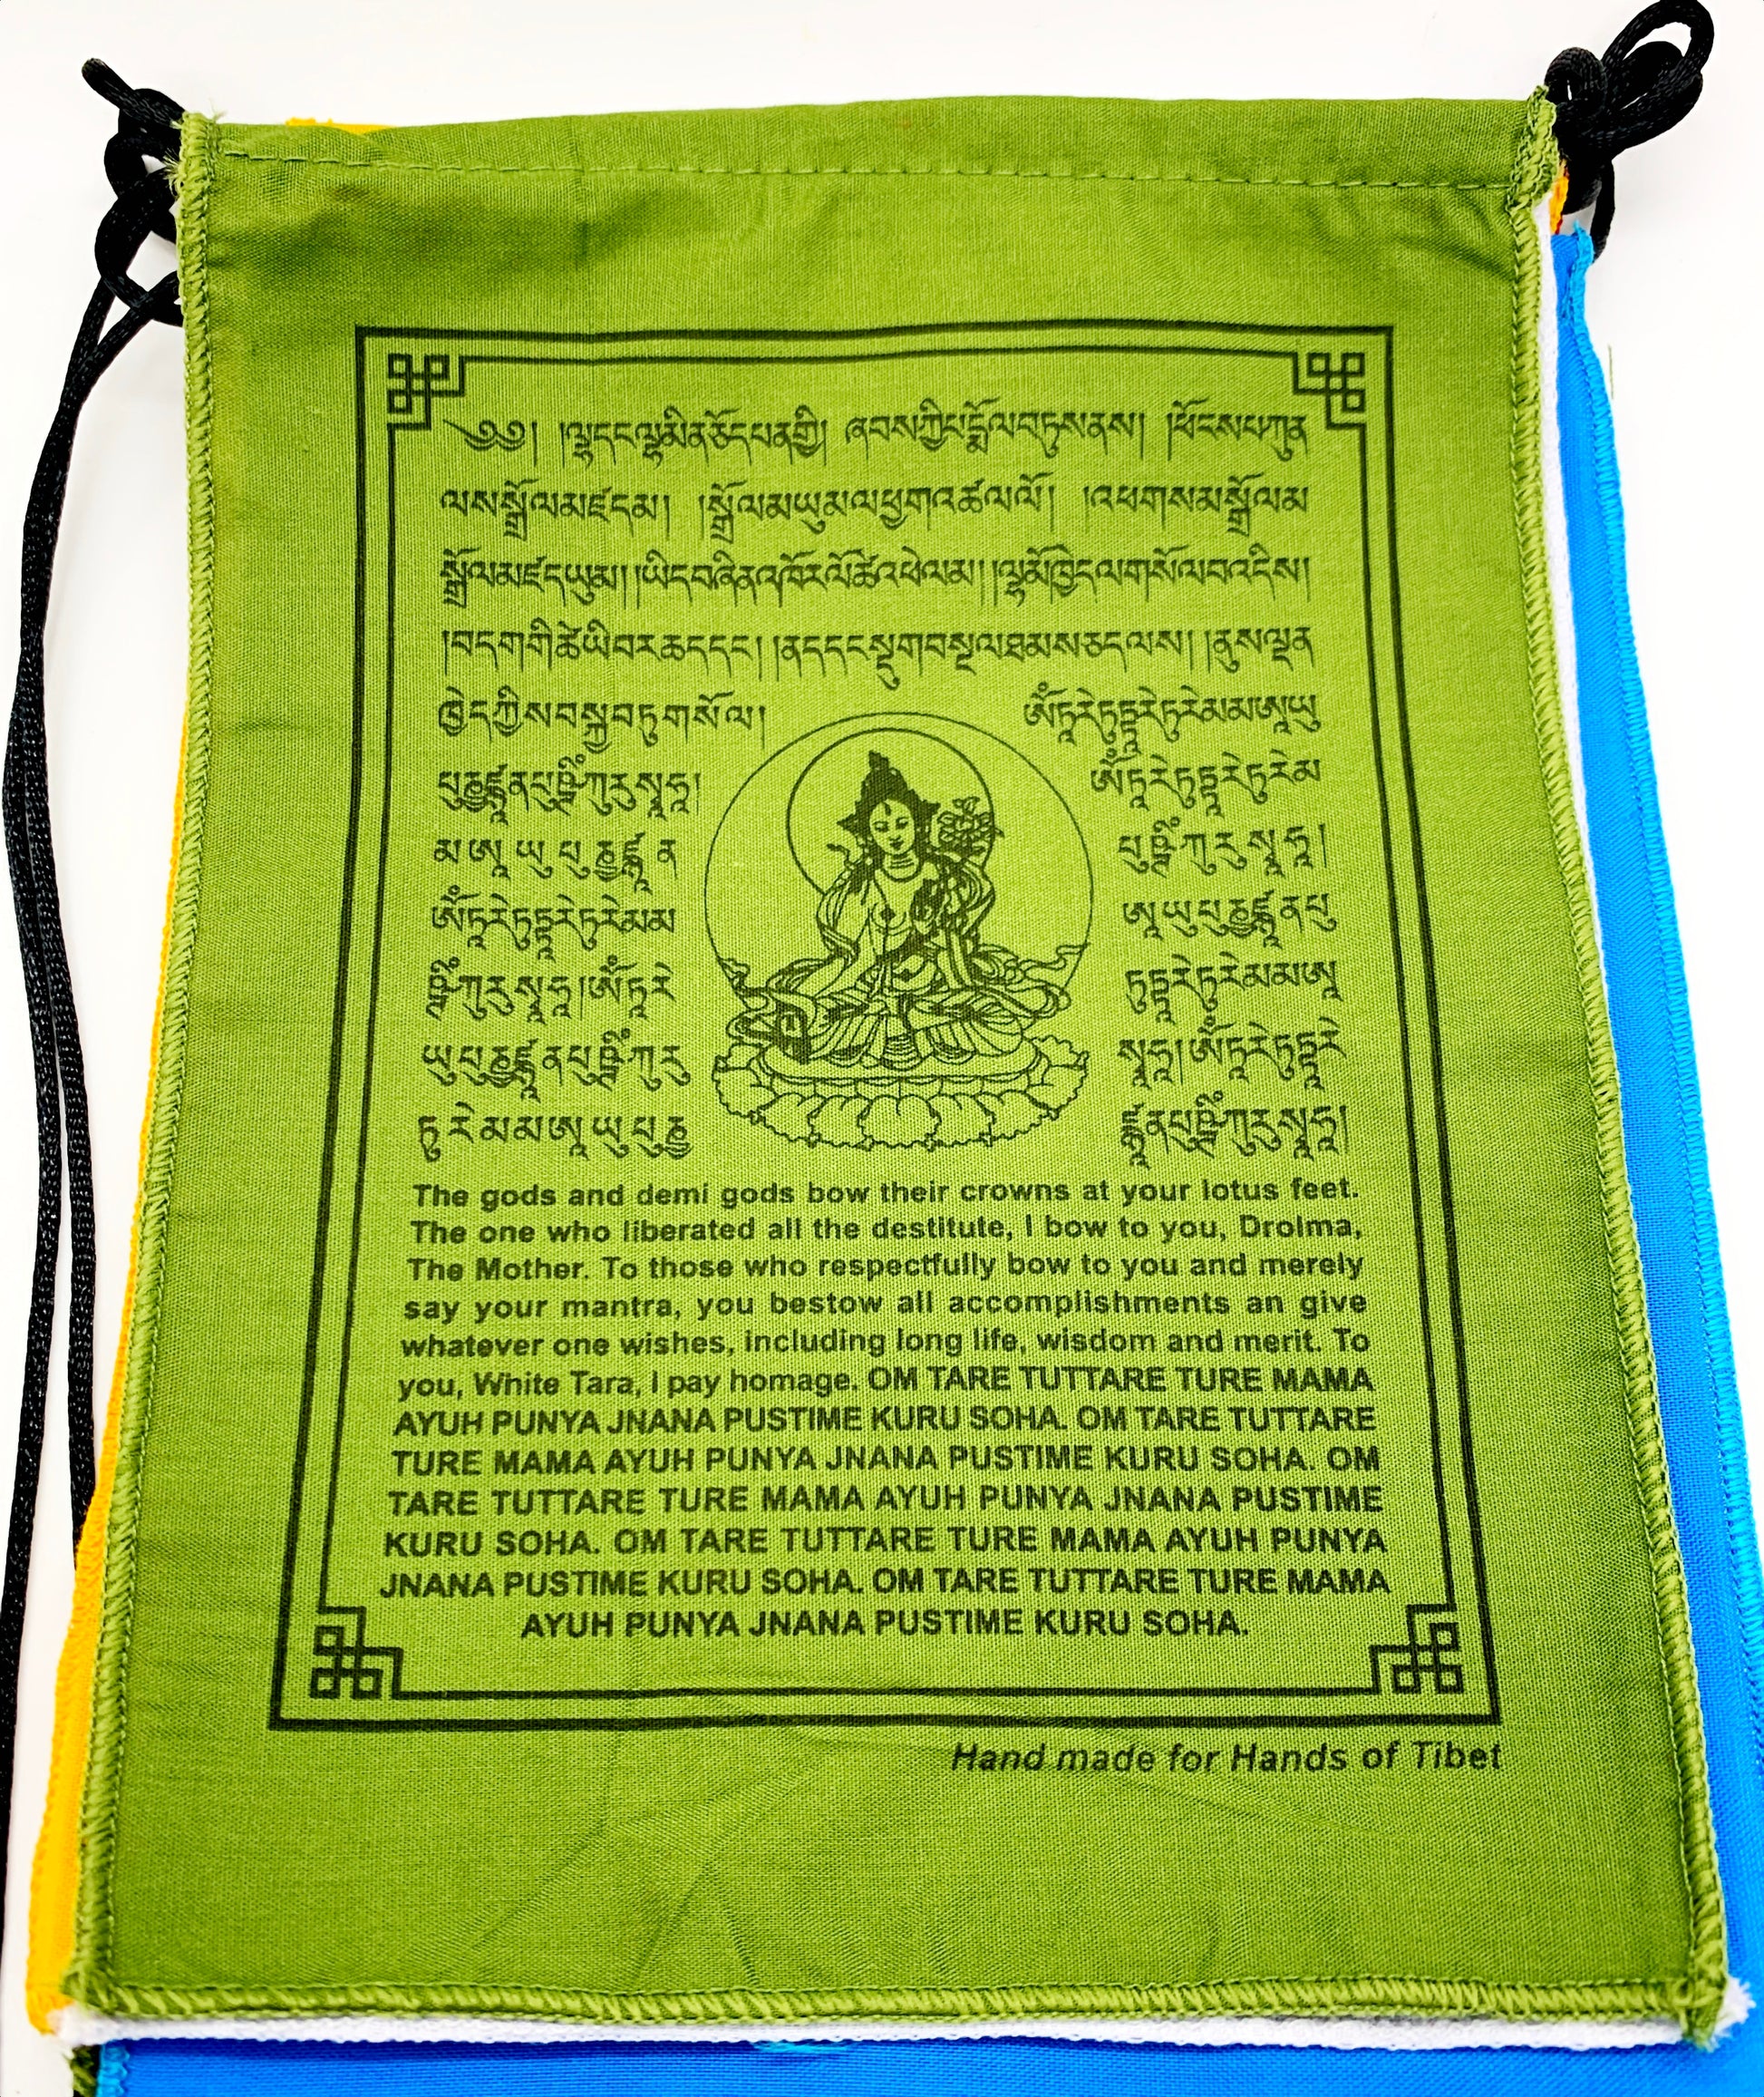 ༄༅། །ལྷ་དང་ལྷ་མིན་ཅོད་པན་གྱི། ཞབས་ཀྱི་པདྨོ་ལ་བཏུས་ནས། །ཕོངས་པ་ཀུན་
ལས་སྒྲོལ་མཛད་མ། །སྒྲོལ་མ་ཡུམ་ལ་ཕྱག་འཚལ་ལོ། །འཕགས་མ་སྒྲོལ་མ་
སྒྲོལ་མཛད་ཡུམ། །ཡིད་བཞིན་འཁོར་ལོ་ཚེ་འཕེལ་མ། །ལྷ་མོ་ཁྱེད་ལ་གསོལ་བ་འདེབས།
།བདག་གི་ཚེ་ཡི་བར་ཆད་དང་། །ནད་དང་སྡུག་བསྔལ་ཐམས་ཅད་ལས། །ནུས་ལྡན་
ཁྱེད་ཀྱིས་བསྐྱབ་ཏུ་གསོལ། ཨོཾ་ཏཱ་རེ་ཏུཏྟཱ་རེ་ཏུ་རེ་མ་མ་ཨཱ་ཡུ་
པུ་ཎྱེ་ཛྙཱ་ན་པུཥྚིཾ་ཀུ་རུ་སྭཱ་ཧཱ། ཨོཾ་ཏཱ་རེ་ཏུཏྟཱ་རེ་ཏུ་རེ་མ་
མ་ཨཱ་ཡུ་པུ་ཎྱེ་ཛྙཱ་ན་ པུཥྚིཾ་ཀུ་རུ་སྭཱ་ཧཱ།
ཨོཾ་ཏཱ་རེ་ཏུཏྟཱ་རེ་ཏུ་རེ་མ་མ་ ཨཱ་ཡུ་པུ་ཎྱེ་ཛྙཱ་ན་པུ
ཥྚིཾ་ཀུ་རུ་སྭཱ་ཧཱ། ཨོཾ་ཏཱ་རེ་ ཏུཏྟཱ་རེ་ཏུ་རེ་མ་མ་ཨཱ་
ཡུ་པུ་ཎྱེ་ཛྙཱ་ན་པུཥྚིཾ་ཀུ་རུ་ སྭཱ་ཧཱ། ཨོཾ་ཏཱ་རེ་ཏུཏྟཱ་རེ་
ཏུ་རེ་མ་མ་ཨཱ་ཡུ་པུ་ཎྱེ་ ཛྙཱ་ན་པུཥྚིཾ་ཀུ་རུ་སྭཱ་ཧཱ།
The gods and demi gods bow their crowns at your lotus feet.
The one who liberated all the destitute, I bow to you, Drolma,
The Mother. To those who respectfully bow to you and merely
say your mantra, you bestow all accomplishments an give
whatever one wishes, including long life, wisdom and merit. To
you, White Tara, I pay homage. OM TARE TUTTARE TURE MAMA
AYUH PUNYA JNANA PUSTIME KURU SOHA. OM TARE TUTTARE
TURE MAMA AYUH PUNYA JNANA PUSTIME KURU SOHA. OM
TARE TUTTARE TURE MAMA AYUH PUNYA JNANA PUSTIME
KURU SOHA. OM TARE TUTTARE TURE MAMA AYUH PUNYA
JNANA PUSTIME KURU SOHA. OM TARE TUTTARE TURE MAMA
AYUH PUNYA JNANA PUSTIME KURU SOHA.
Hand made for Hands of Tibet